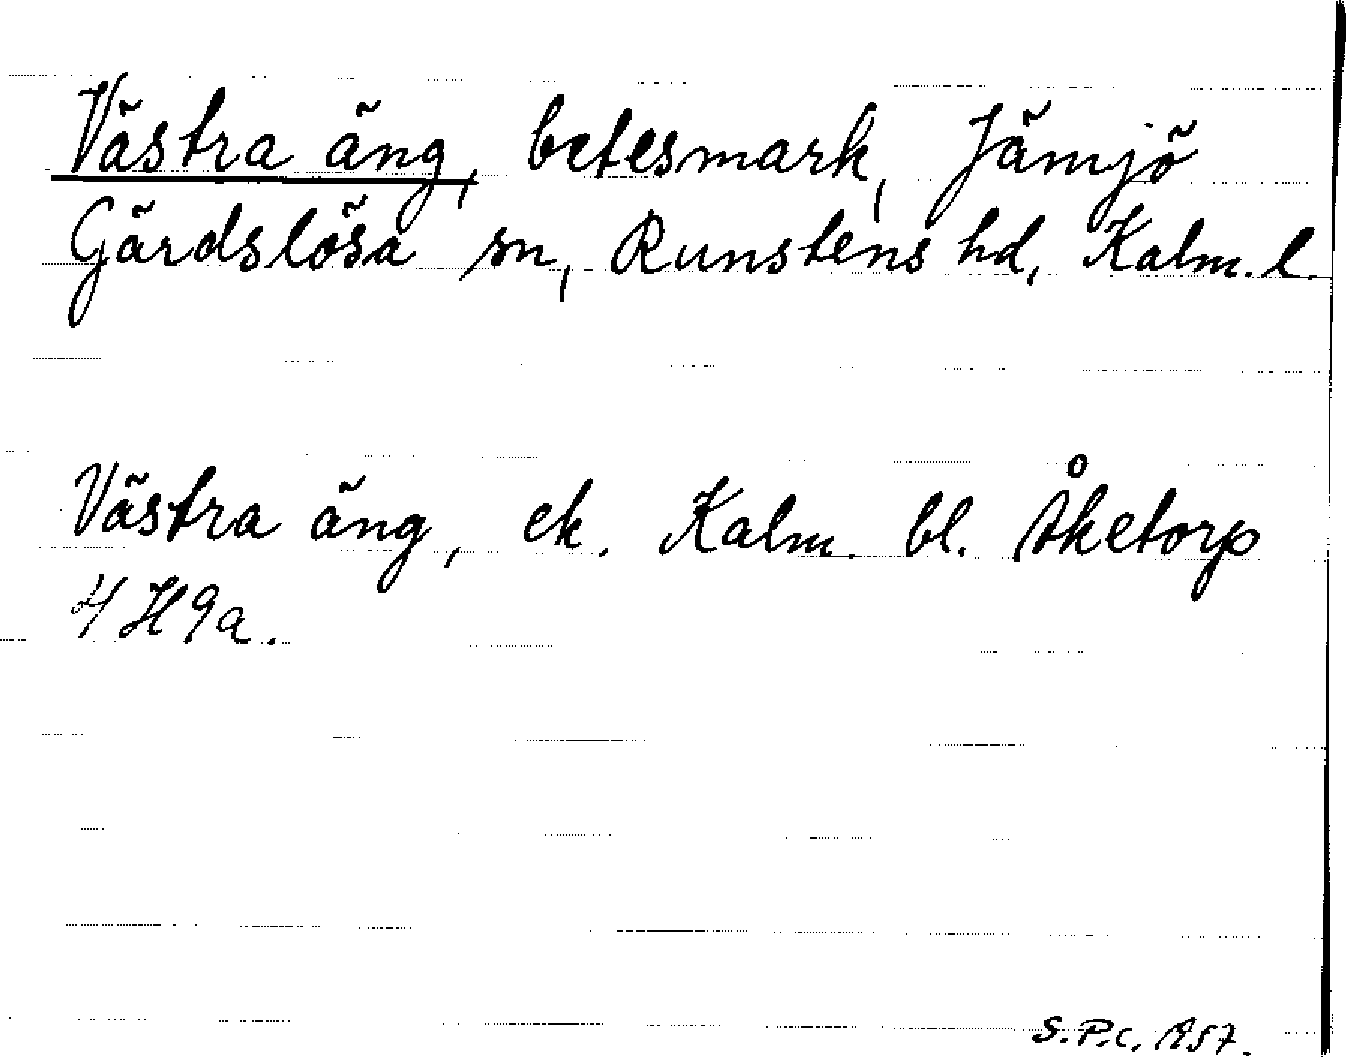 Västra äng, betesmark, Jämjö
Gärdslösa sn, Runstens hd, Kalm. l.
Västra äng, ek. Kalm. bl. Åketorp
4H9a.
S.P.c.